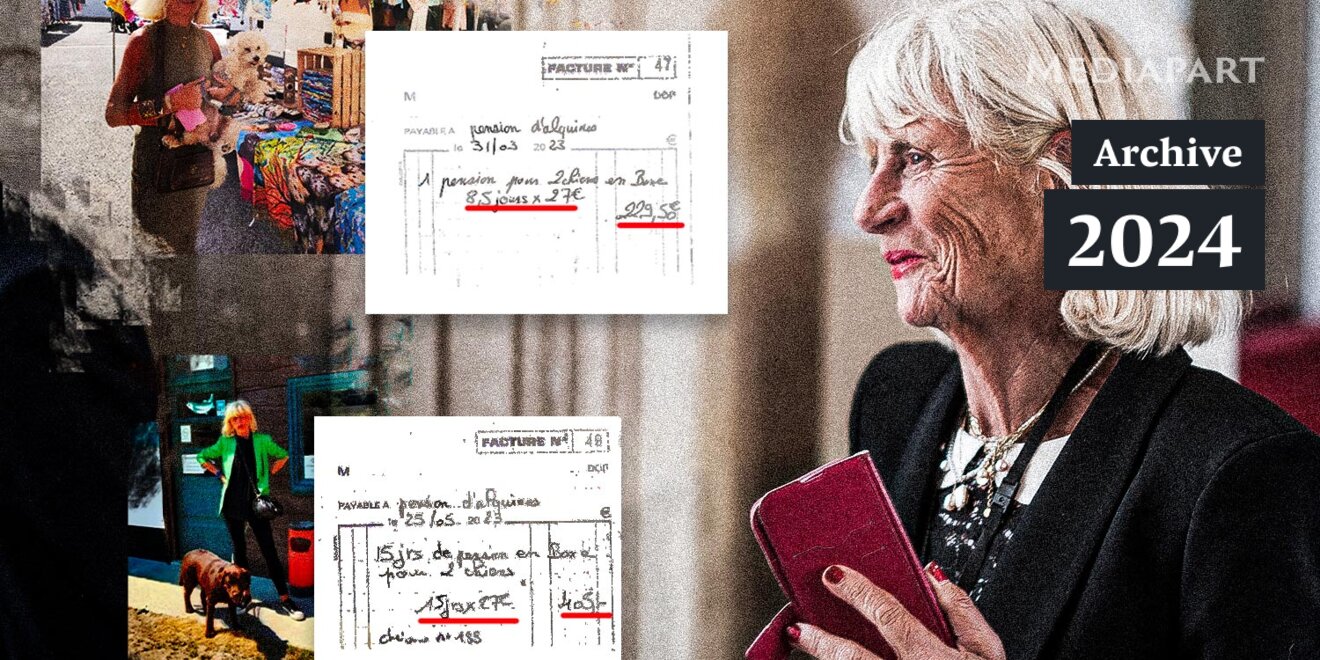 MEDIAPART
Archive
2024
FACTURE Nº 47
M
DOIT
PAYABLE A pension d'alquines
le 31/03 2023
€
1 pension pour 2 chiens en Boxe
8,5 jours x 27€
229,50€
FACTURE Nº 48
M
DOIT
PAYABLE A pension d'alquines
le 25/05 2023
€
15 jrs de pension en Boxe
pour 2 chiens
15 jrs x 27€
405€